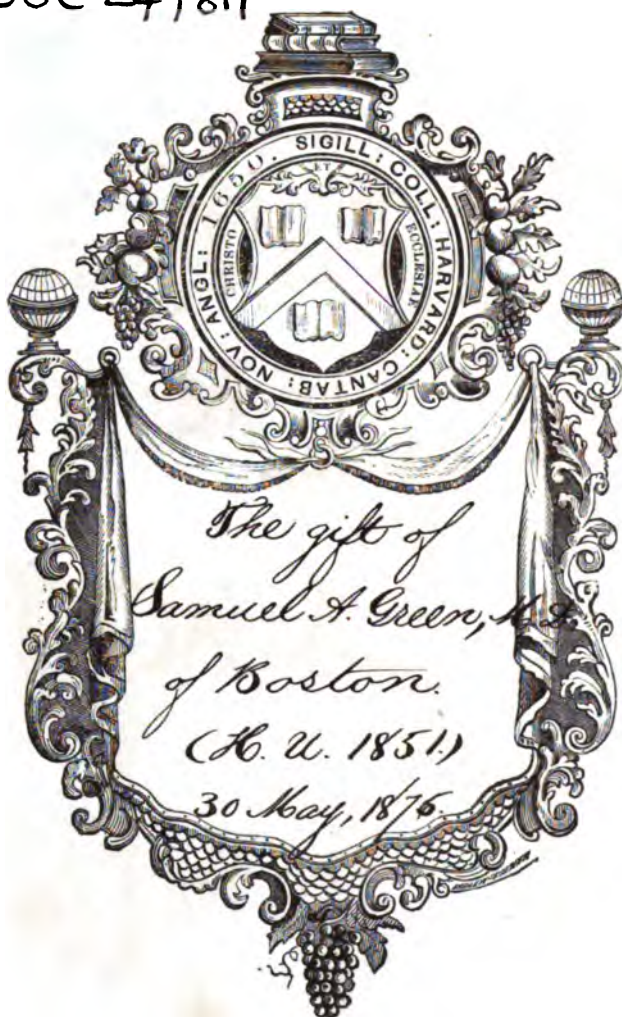 SIGILL: COLL: HARVARD: CANTAB: NOV: ANGL: 1650.
CHRISTO
ET
ECCLESIÆ
The gift of
Samuel A. Green, M.D.
of Boston.
(H. U. 1851.)
30 May, 1876.